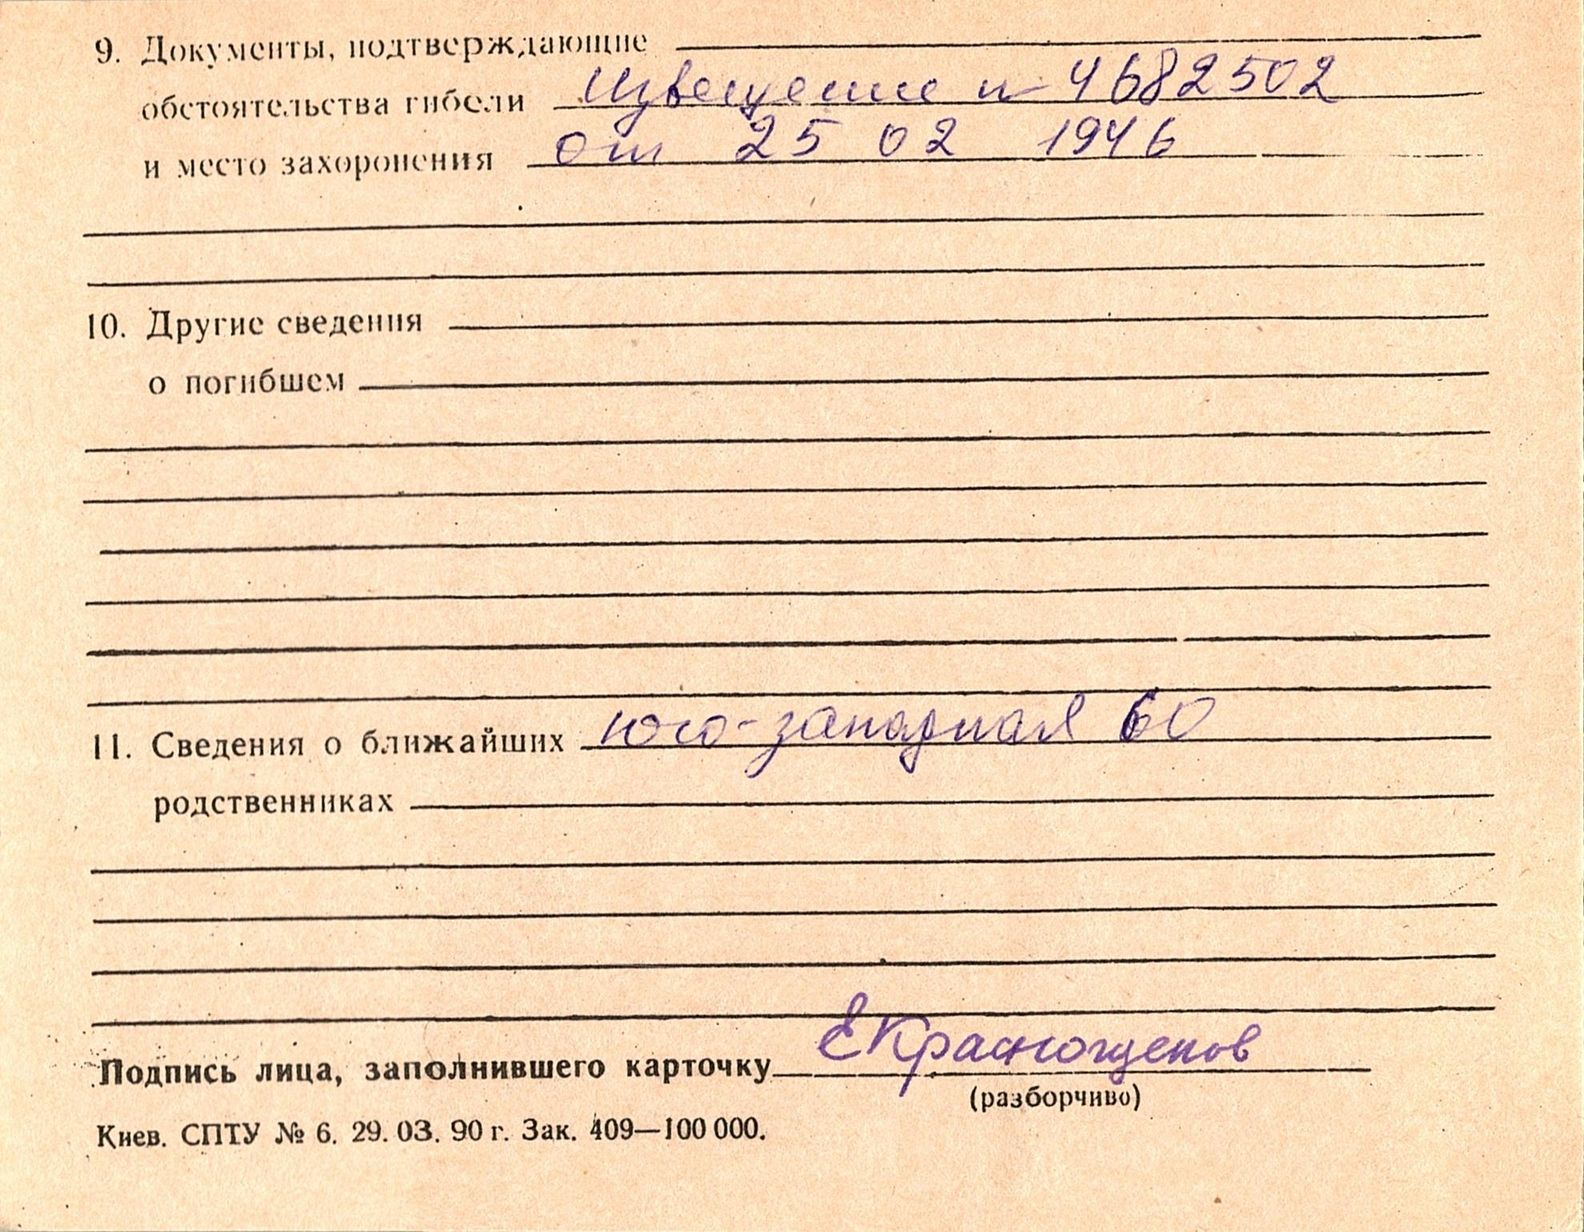 9. Документы, подтверждающие
обстоятельства гибели Извещение н 4682502
и место захоронения от 25 02 1946
10. Другие сведения
о погибшем
11. Сведения о ближайших юго-западная 60
родственниках
Подпись лица, заполнившего карточку ЕКраснощеков
(разборчиво)
Киев. СПТУ № 6. 29.03.90 г. Зак. 409—100 000.